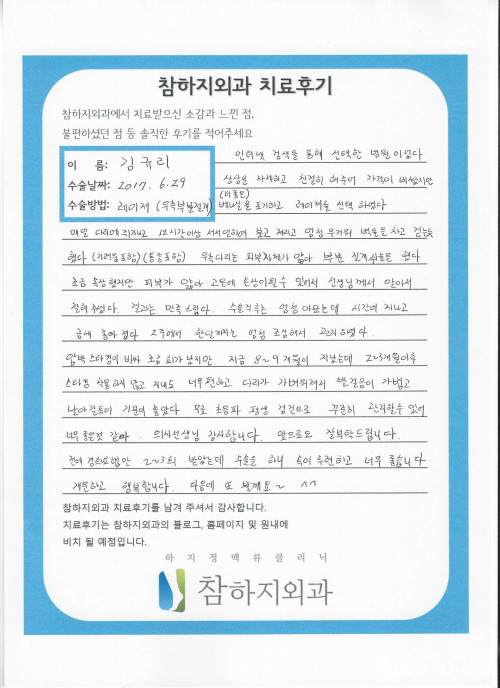 참하지외과 치료후기
참하지외과에서 치료받으신 소감과 느낀 점,
불편하셨던 점 등 솔직한 후기를 적어주세요
이 름: 김규리
수술날짜: 2017. 6. 29
수술방법: 레이저 (우측부분절개)
인터넷 검색을 통해 선택한 병원이었다
상담을 자세하고 친절히 해주어 가격이 비쌌지만
(더 좋은)
베나실을 포기하고 레이저를 선택 하였다
매일 다리에 쥐나고 12시간이상 서서일하며 붓고 저리고 엄청 무거워 벽돌을 차고 걷는듯
했다 (가려움포함) (통증포함) 우측다리는 피부자체가 얇아 부분 절개시술을 했다
조금 속상했지만 피부가 얇아 고온에 손상이될수 있어서 선생님께서 알아서
잘해주셨다. 결과는 만족스럽다. 수술직후는 엄청 아팠는데 시간이 지나고
금세 좋아 졌다 2주에서 한달까지는 엄청 조심해서 관리하였다.
압박 스타킹이 비싸 조금 화가 났지만 지금 8~9개월이 지났는데 2~3개월이후
스타킹 착용하지 않고 지내도 너무 편하고 다리가 가벼워져서 발걸음이 가볍고
날아갈듯이 기분이 좋았다 무료 초음파 평생 검진으로 꾸준히 관리할수 있어
너무 좋은것 같아. 의사선생님 감사합니다. 앞으로도 잘부탁드립니다.
전에 경화요법만 2~3회 받았는데 수술을 하니 속이 후련하고 너무 좋습니다
개운하고 행복합니다. 다음에 또 뵐게요~ ^^
참하지외과 치료후기를 남겨 주셔서 감사합니다.
치료후기는 참하지외과의 블로그, 홈페이지 및 원내에
비치 될 예정입니다.
하지정맥류클리닉
참하지외과